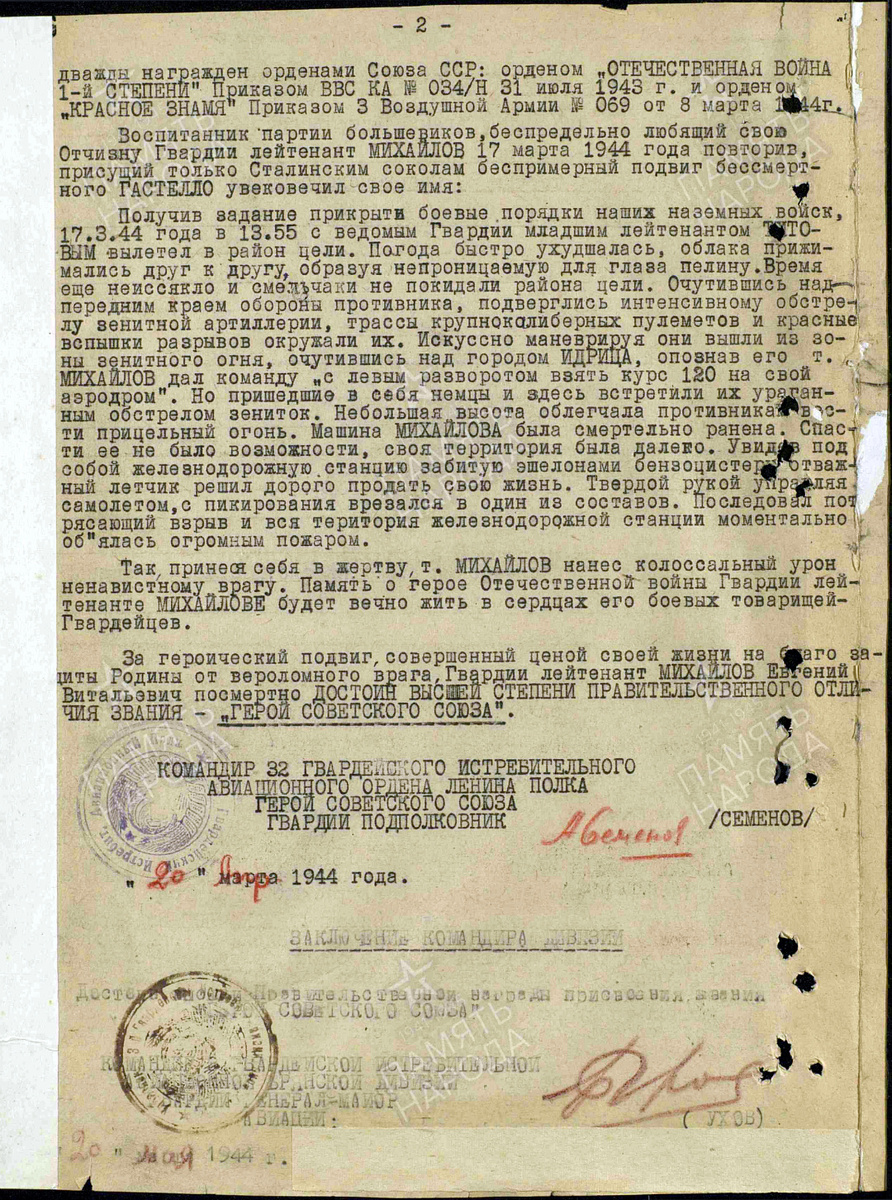 - 2 -
дважды награжден орденами Союза ССР: орденом „ОТЕЧЕСТВЕННАЯ ВОЙНА
1-й СТЕПЕНИ" Приказом ВВС КА № 034/Н 31 июля 1943 г. и орденом
„КРАСНОЕ ЗНАМЯ" Приказом 3 Воздушной Армии № 069 от 8 марта 1944г.
Воспитанник партии большевиков, беспредельно любящий свою
Отчизну Гвардии лейтенант МИХАЙЛОВ 17 марта 1944 года повторив,
присущий только Сталинским соколам беспримерный подвиг бессмерт-
ного ГАСТЕЛЛО увековечил свое имя:
Получив задание прикрыти боевые порядки наших наземных войск,
17.3.44 года в 13.55 с ведомым Гвардии младшим лейтенантом ТИТО-
ВЫМ вылетел в район цели. Погода быстро ухудшалась, облака прижи-
мались друг к другу, образуя непроницаемую для глаза пелину. Время
еще неиссякло и смельчаки не покидали района цели. Очутившись над
передним краем обороны противника, подверглись интенсивному обстре-
лу зенитной артиллерии, трассы крупнокалиберных пулеметов и красные
вспышки разрывов окружали их. Искуссно маневрируя они вышли из зо-
ны зенитного огня, очутившись над городом ИДРИЦА, опознав его т.
МИХАЙЛОВ дал команду „с левым разворотом взять курс 120 на свой
аэродром". Но пришедшие в себя немцы и здесь встретили их ураган-
ным обстрелом зениток. Небольшая высота облегчала противникам вес-
ти прицельный огонь. Машина МИХАЙЛОВА была смертельно ранена. Спас-
ти ее не было возможности, своя территория была далеко. Увидев под
собой железнодорожную станцию забитую эшелонами бензоцистерн отваж-
ный летчик решил дорого продать свою жизнь. Твердой рукой управляя
самолетом, с пикирования врезался в один из составов. Последовал пот
рясающий взрыв и вся територия железнодорожной станции моментально
об"ялась огромным пожаром.
Так, принеся себя в жертву, т. МИХАЙЛОВ нанес колоссальный урон
ненавистному врагу. Память о герое Отечественной войны Гвардии лей-
тенанте МИХАЙЛОВЕ будет вечно жить в сердцах его боевых товарищей-
Гвардейцев.
За героический подвиг, совершенный ценой своей жизни на благо за-
щиты Родины от вероломного врага, Гвардии лейтенант МИХАЙЛОВ Евгений
Витальевич посмертно ДОСТОИН ВЫСШЕЙ СТЕПЕНИ ПРАВИТЕЛЬСТВЕННОГО ОТЛИ-
ЧИЯ ЗВАНИЯ - „ГЕРОЙ СОВЕТСКОГО СОЮЗА".
КОМАНДИР 32 ГВАРДЕЙСКОГО ИСТРЕБИТЕЛЬНОГО
АВИАЦИОННОГО ОРДЕНА ЛЕНИНА ПОЛКА
ГЕРОЙ СОВЕТСКОГО СОЮЗА
ГВАРДИИ ПОДПОЛКОВНИК АСеменов /СЕМЕНОВ/
„ 20 " марта 1944 года.
ЗАКЛЮЧЕНИЕ КОМАНДИРА ДИВИЗИИ
Правительственной награды присвоения звания
СОВЕТСКОГО СОЮЗА"
ИСТРЕБИТЕЛЬНОЙ
ДИВИЗИИ
ГВАРДИИ ГЕНЕРАЛ-МАЙОР
АВИАЦИИ: ( УХОВ)
" 20 " мая 1944 г.
ПАМЯТЬ
НАРОДА